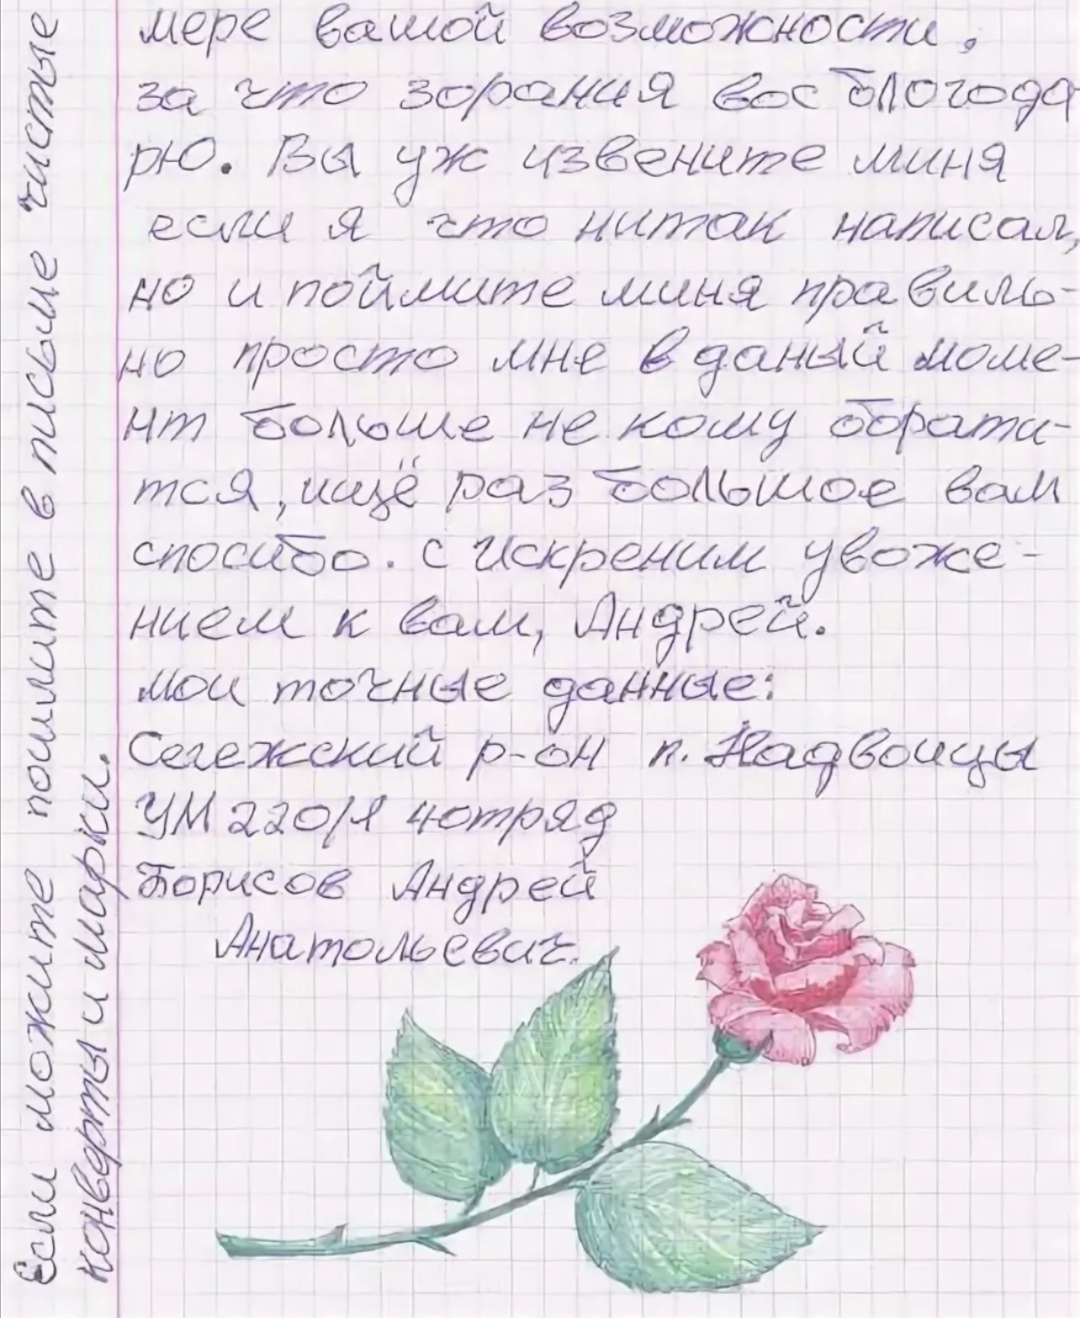 мере вашой возможности.
за что зорания вос блогода
рю. Вы уж извените миня
если я что нитак написал,
но и поймите миня правиль-
но просто мне в даный моме-
нт больше не кому обрати-
тся, ищё раз большое вам
спосибо. с искреним увоже-
нием к вам, Андрей.
мои точные данные:
Сегежский р-он п. Надвоицы
УМ 220/1 4отряд
Борисов Андрей
Анатольевич.
Если можите пошлите в письме чистые
конверты и марки.